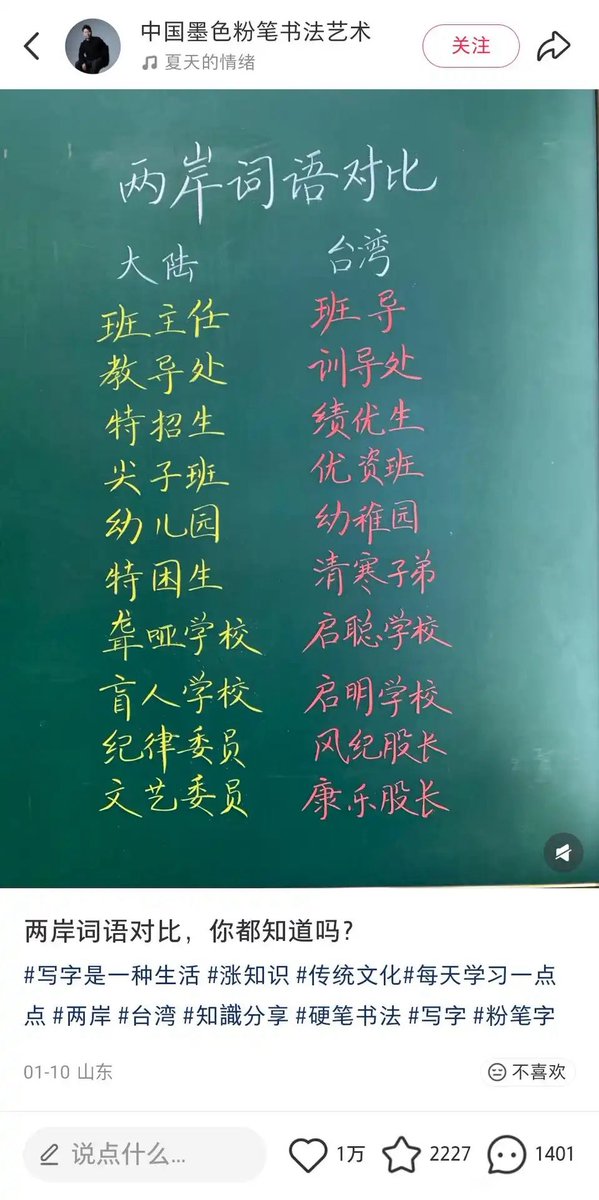 中国墨色粉笔书法艺术
夏天的情绪
关注
两岸词语对比
大陆 台湾
班主任 班导
教导处 训导处
特招生 绩优生
尖子班 优资班
幼儿园 幼稚园
特困生 清寒子弟
聋哑学校 启聪学校
盲人学校 启明学校
纪律委员 风纪股长
文艺委员 康乐股长
两岸词语对比，你都知道吗?
#写字是一种生活 #涨知识 #传统文化#每天学习一点
点 #两岸 #台湾 #知識分享 #硬笔书法 #写字 #粉笔字
01-10 山东
不喜欢
说点什么...
1万
2227
1401